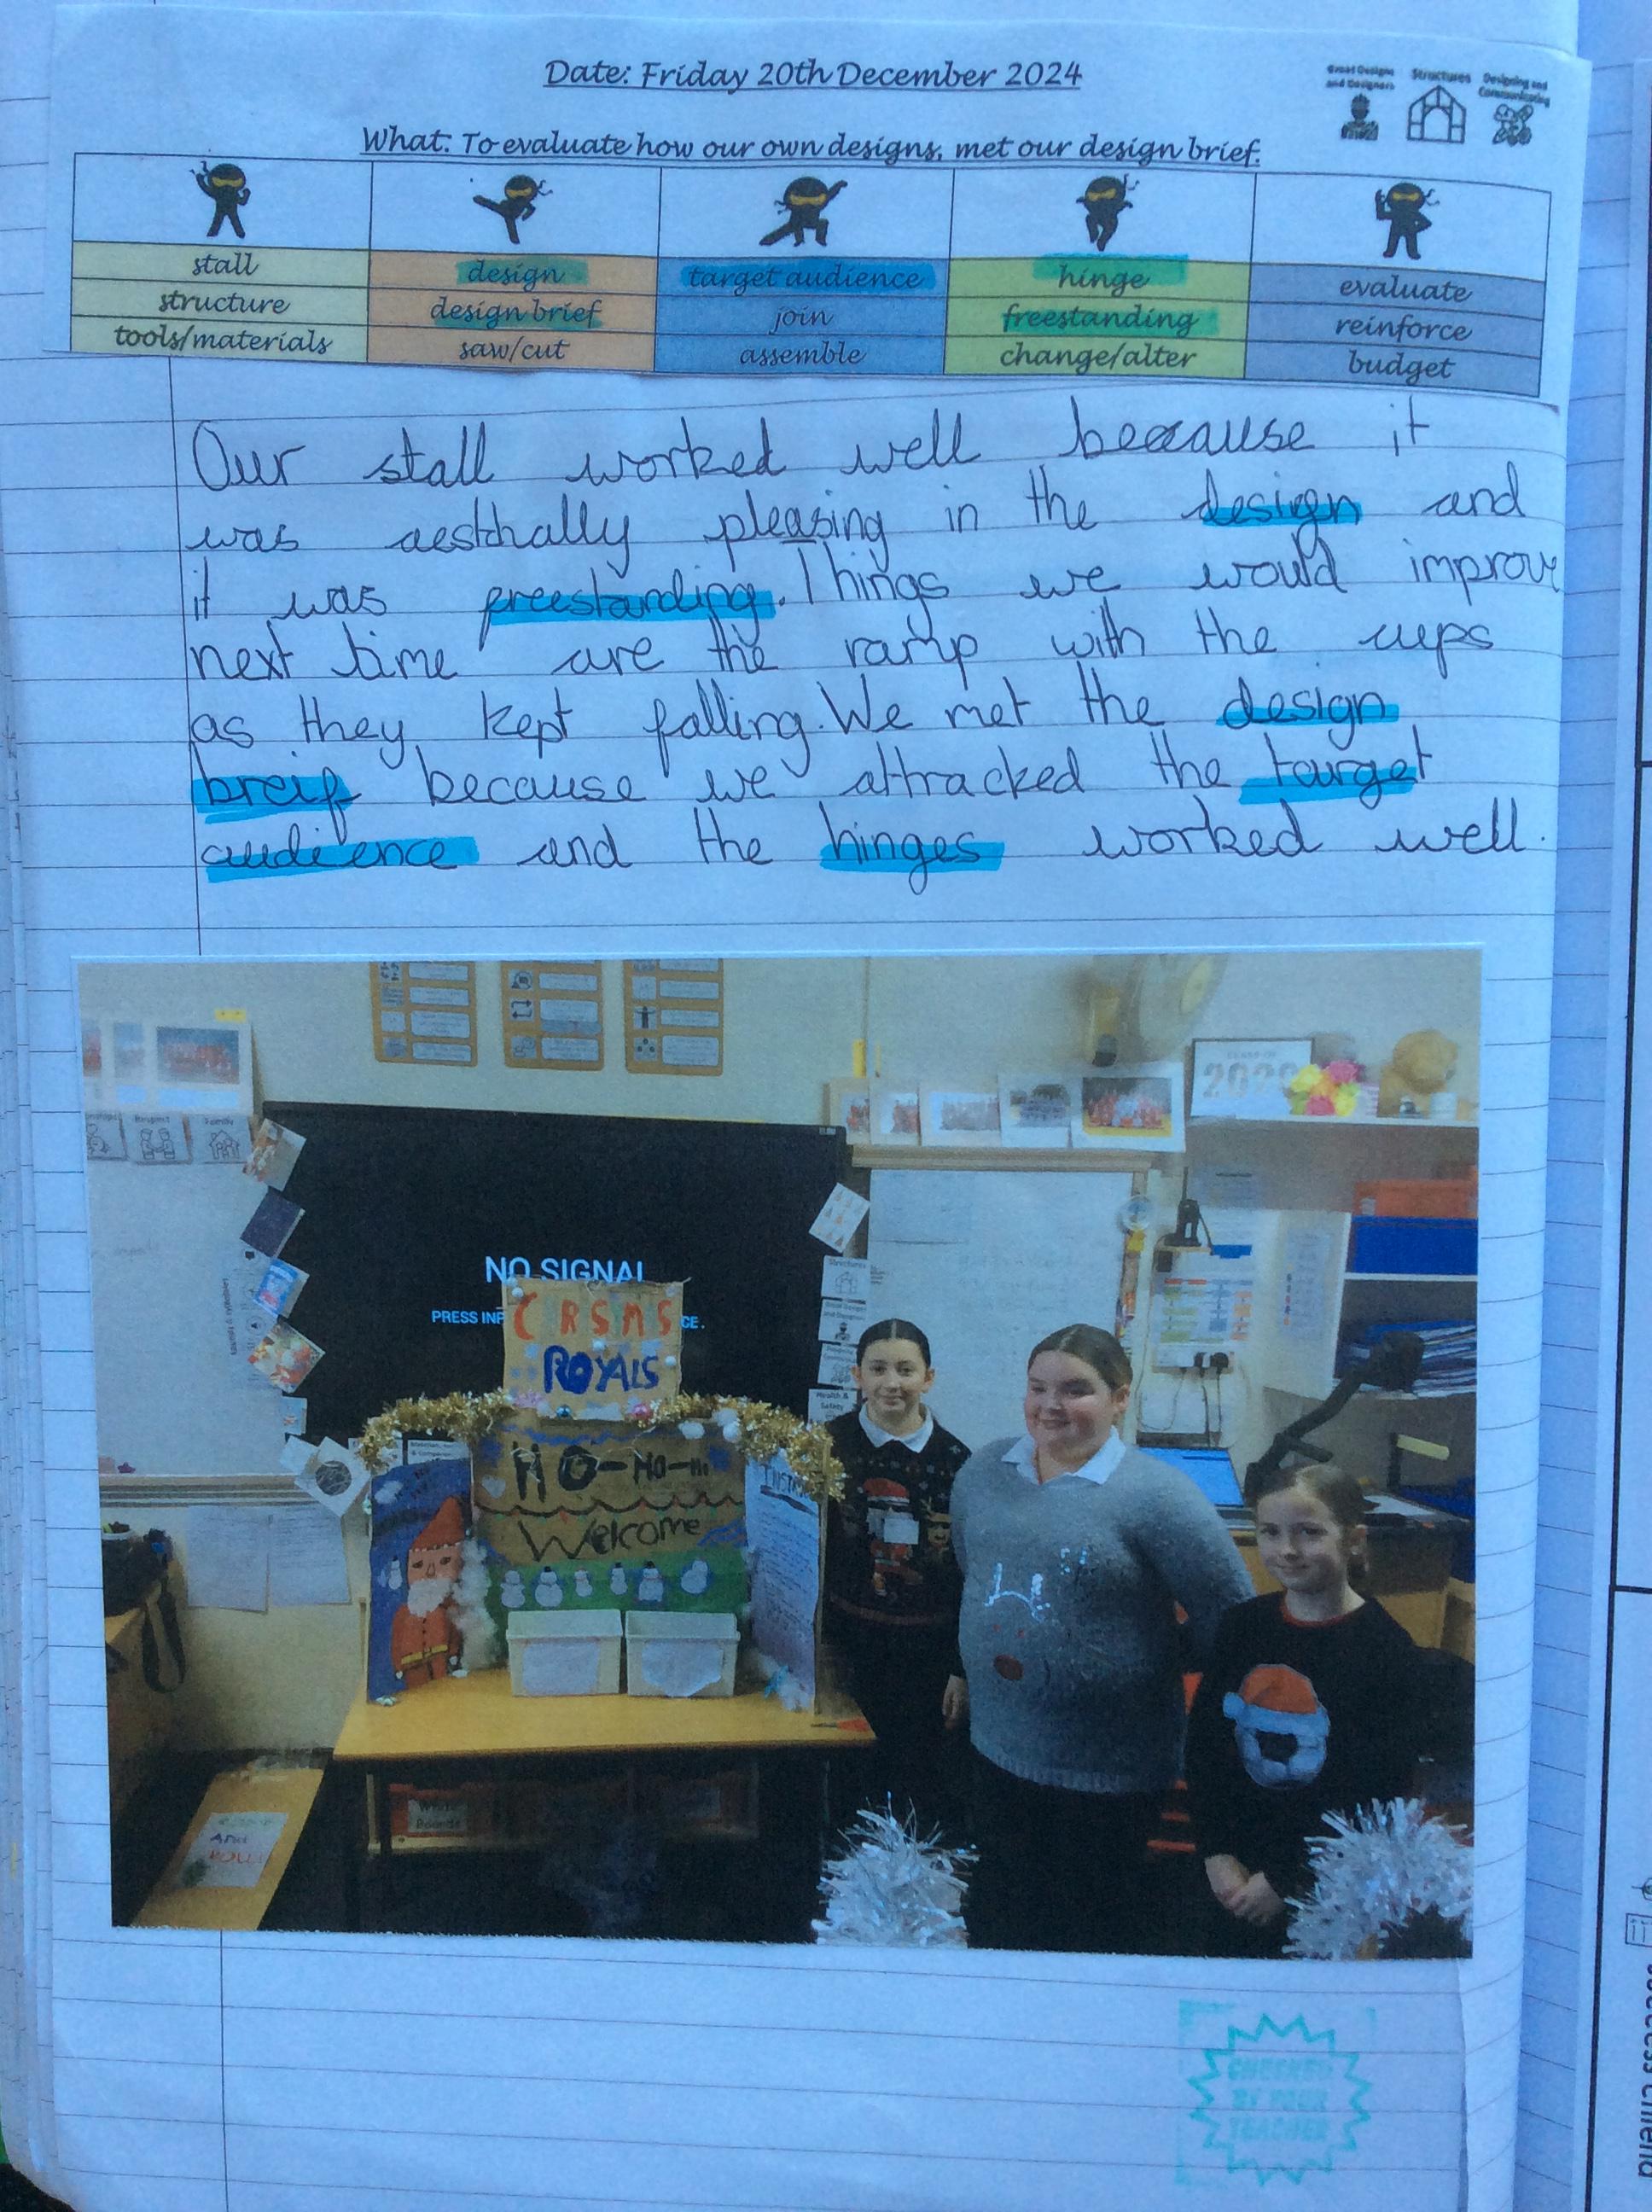 Date: Friday 20th December 2024
Great Designs and Designers
Structures
Designing and Communicating
What: To evaluate how our own designs, met our design brief.
stall design target audience hinge evaluate
structure design brief join freestanding reinforce
tools/materials saw/cut assemble change/alter budget
Our stall worked well because it
was aesthally pleasing in the design and
it was freestanding. Things we would improve
next time are the ramp with the cups
as they kept falling. We met the design
breif because we attracked the target
audience and the hinges worked well.
Respect
Family
NO SIGNAL
PRESS
CE.
C RSMS
ROYALS
HO-HO-H
Welcome
Structures
Health &
Safety
White
Boards
CLASS OF
CHECKED
BY YOUR
TEACHER